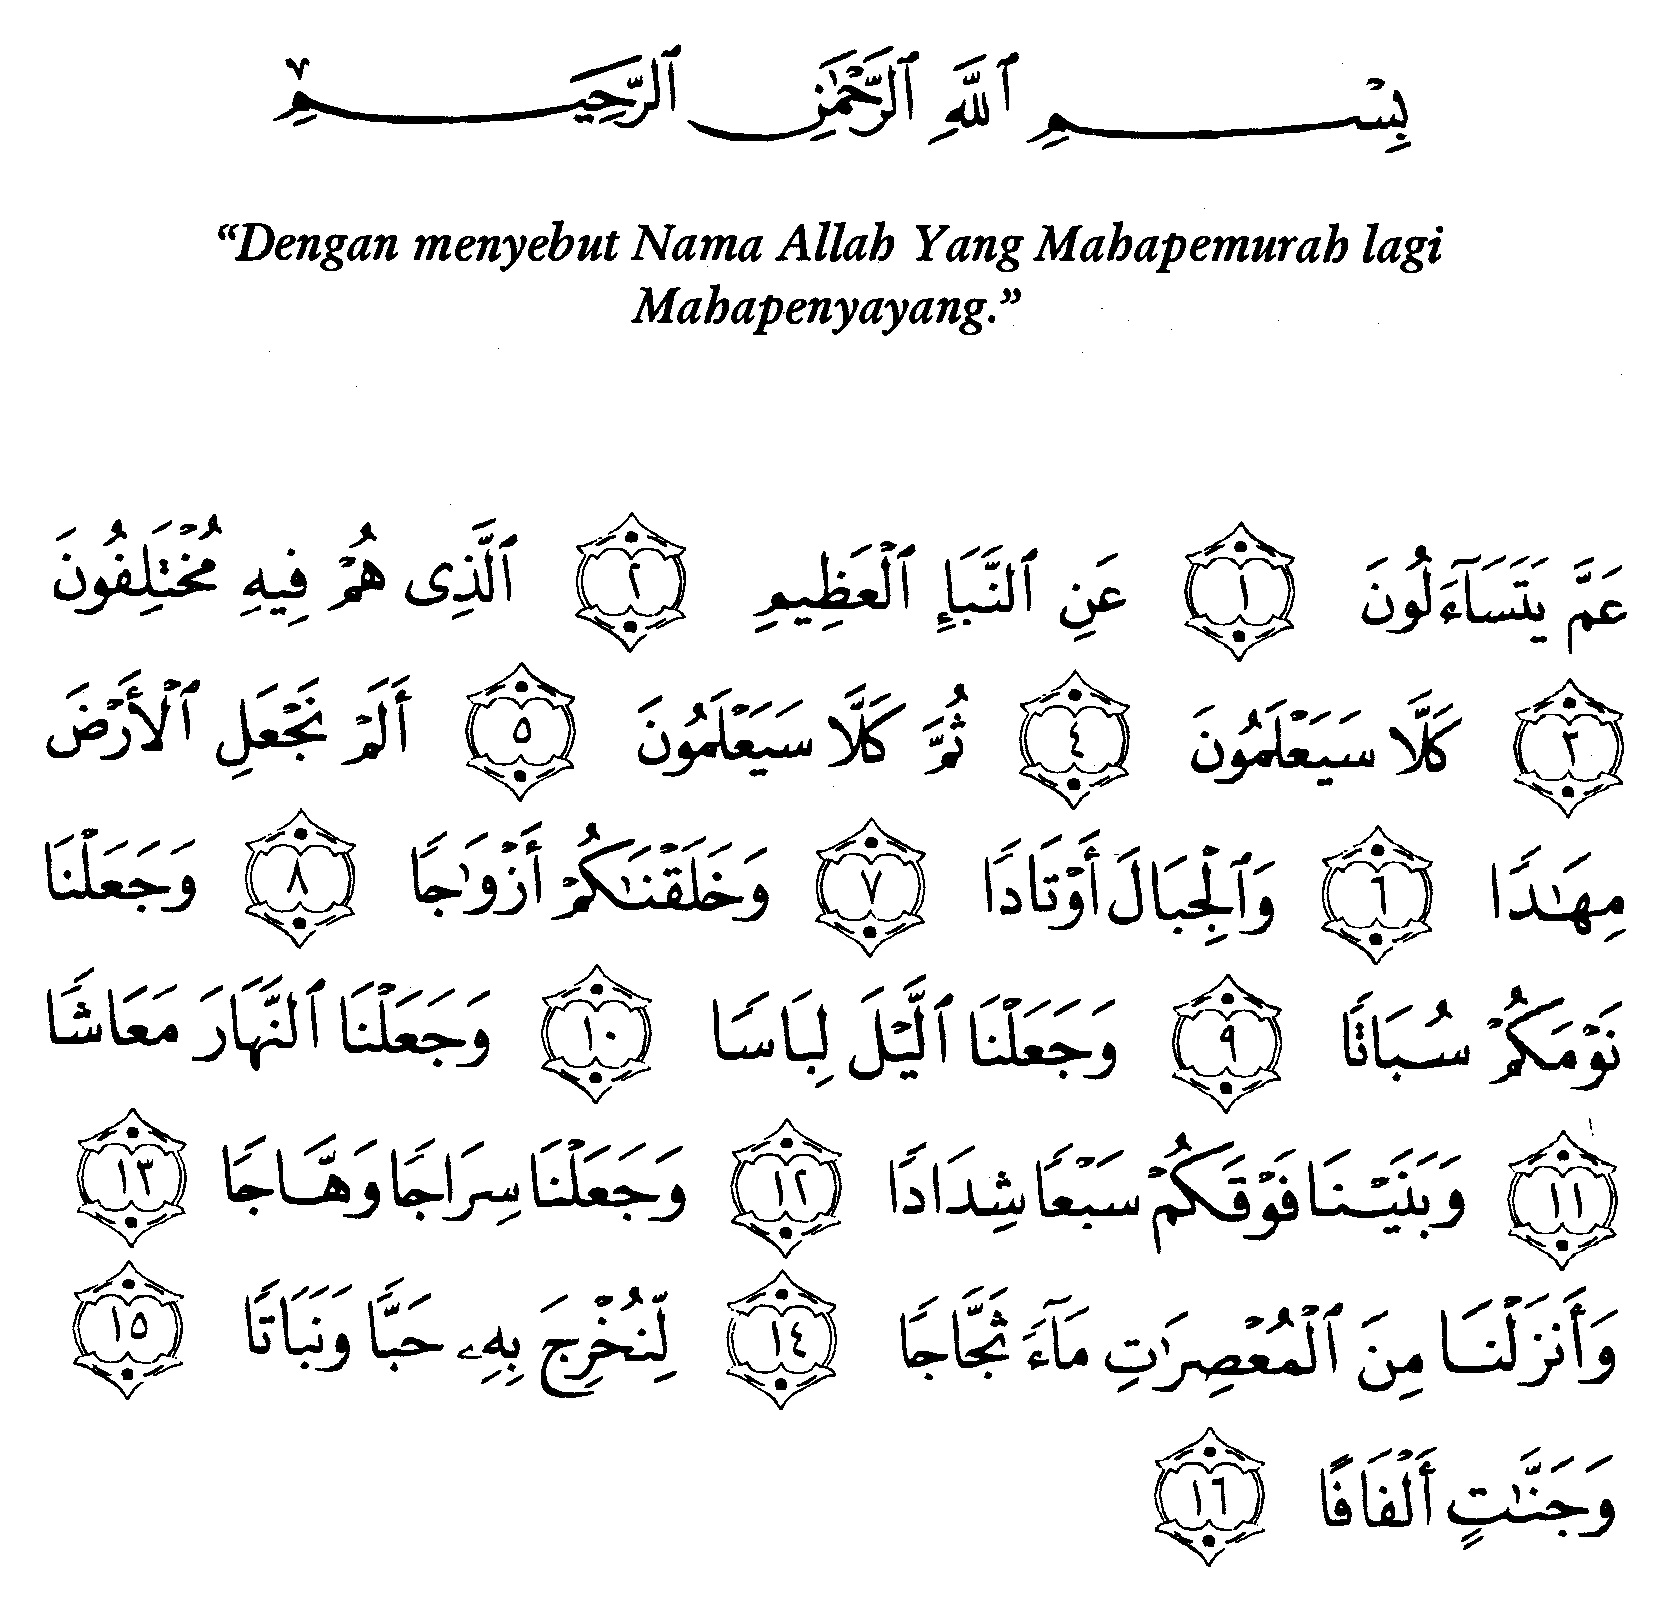 بِسْمِ ٱللَّهِ ٱلرَّحْمَٰنِ ٱلرَّحِيمِ
“Dengan menyebut Nama Allah Yang Mahapemurah lagi
Mahapenyayang.”
عَمَّ يَتَسَآءَلُونَ ١ عَنِ ٱلنَّبَإِ ٱلْعَظِيمِ ٢ ٱلَّذِى هُمْ فِيهِ مُخْتَلِفُونَ
٣ كَلَّا سَيَعْلَمُونَ ٤ ثُمَّ كَلَّا سَيَعْلَمُونَ ٥ أَلَمْ نَجْعَلِ ٱلْأَرْضَ
مِهَٰدًا ٦ وَٱلْجِبَالَ أَوْتَادًا ٧ وَخَلَقْنَٰكُمْ أَزْوَٰجًا ٨ وَجَعَلْنَا
نَوْمَكُمْ سُبَاتًا ٩ وَجَعَلْنَا ٱلَّيْلَ لِبَاسًا ١٠ وَجَعَلْنَا ٱلنَّهَارَ مَعَاشًا
١١ وَبَنَيْنَا فَوْقَكُمْ سَبْعًا شِدَادًا ١٢ وَجَعَلْنَا سِرَاجًا وَهَّاجًا ١٣
وَأَنزَلْنَا مِنَ ٱلْمُعْصِرَٰتِ مَآءً ثَجَّاجًا ١٤ لِّنُخْرِجَ بِهِۦ حَبًّا وَنَبَاتًا ١٥
وَجَنَّٰتٍ أَلْفَافًا ١٦